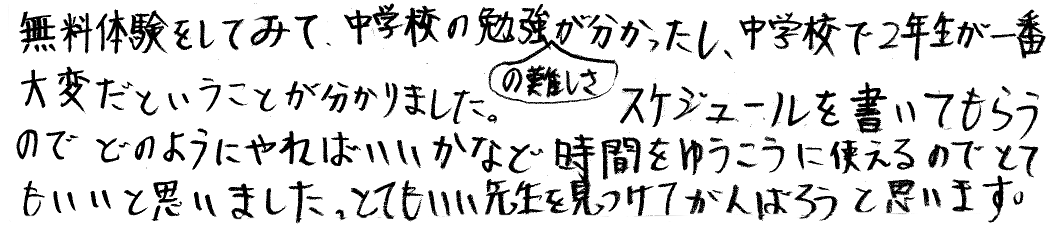 無料体験をしてみて、中学校の勉強の難しさが分かったし、中学校で2年生が一番
大変だということが分かりました。 スケジュールを書いてもらう
のでどのようにやればいいかなど時間をゆうこうに使えるのでとて
もいいと思いました。とてもいい先生を見つけてがんばろうと思います。